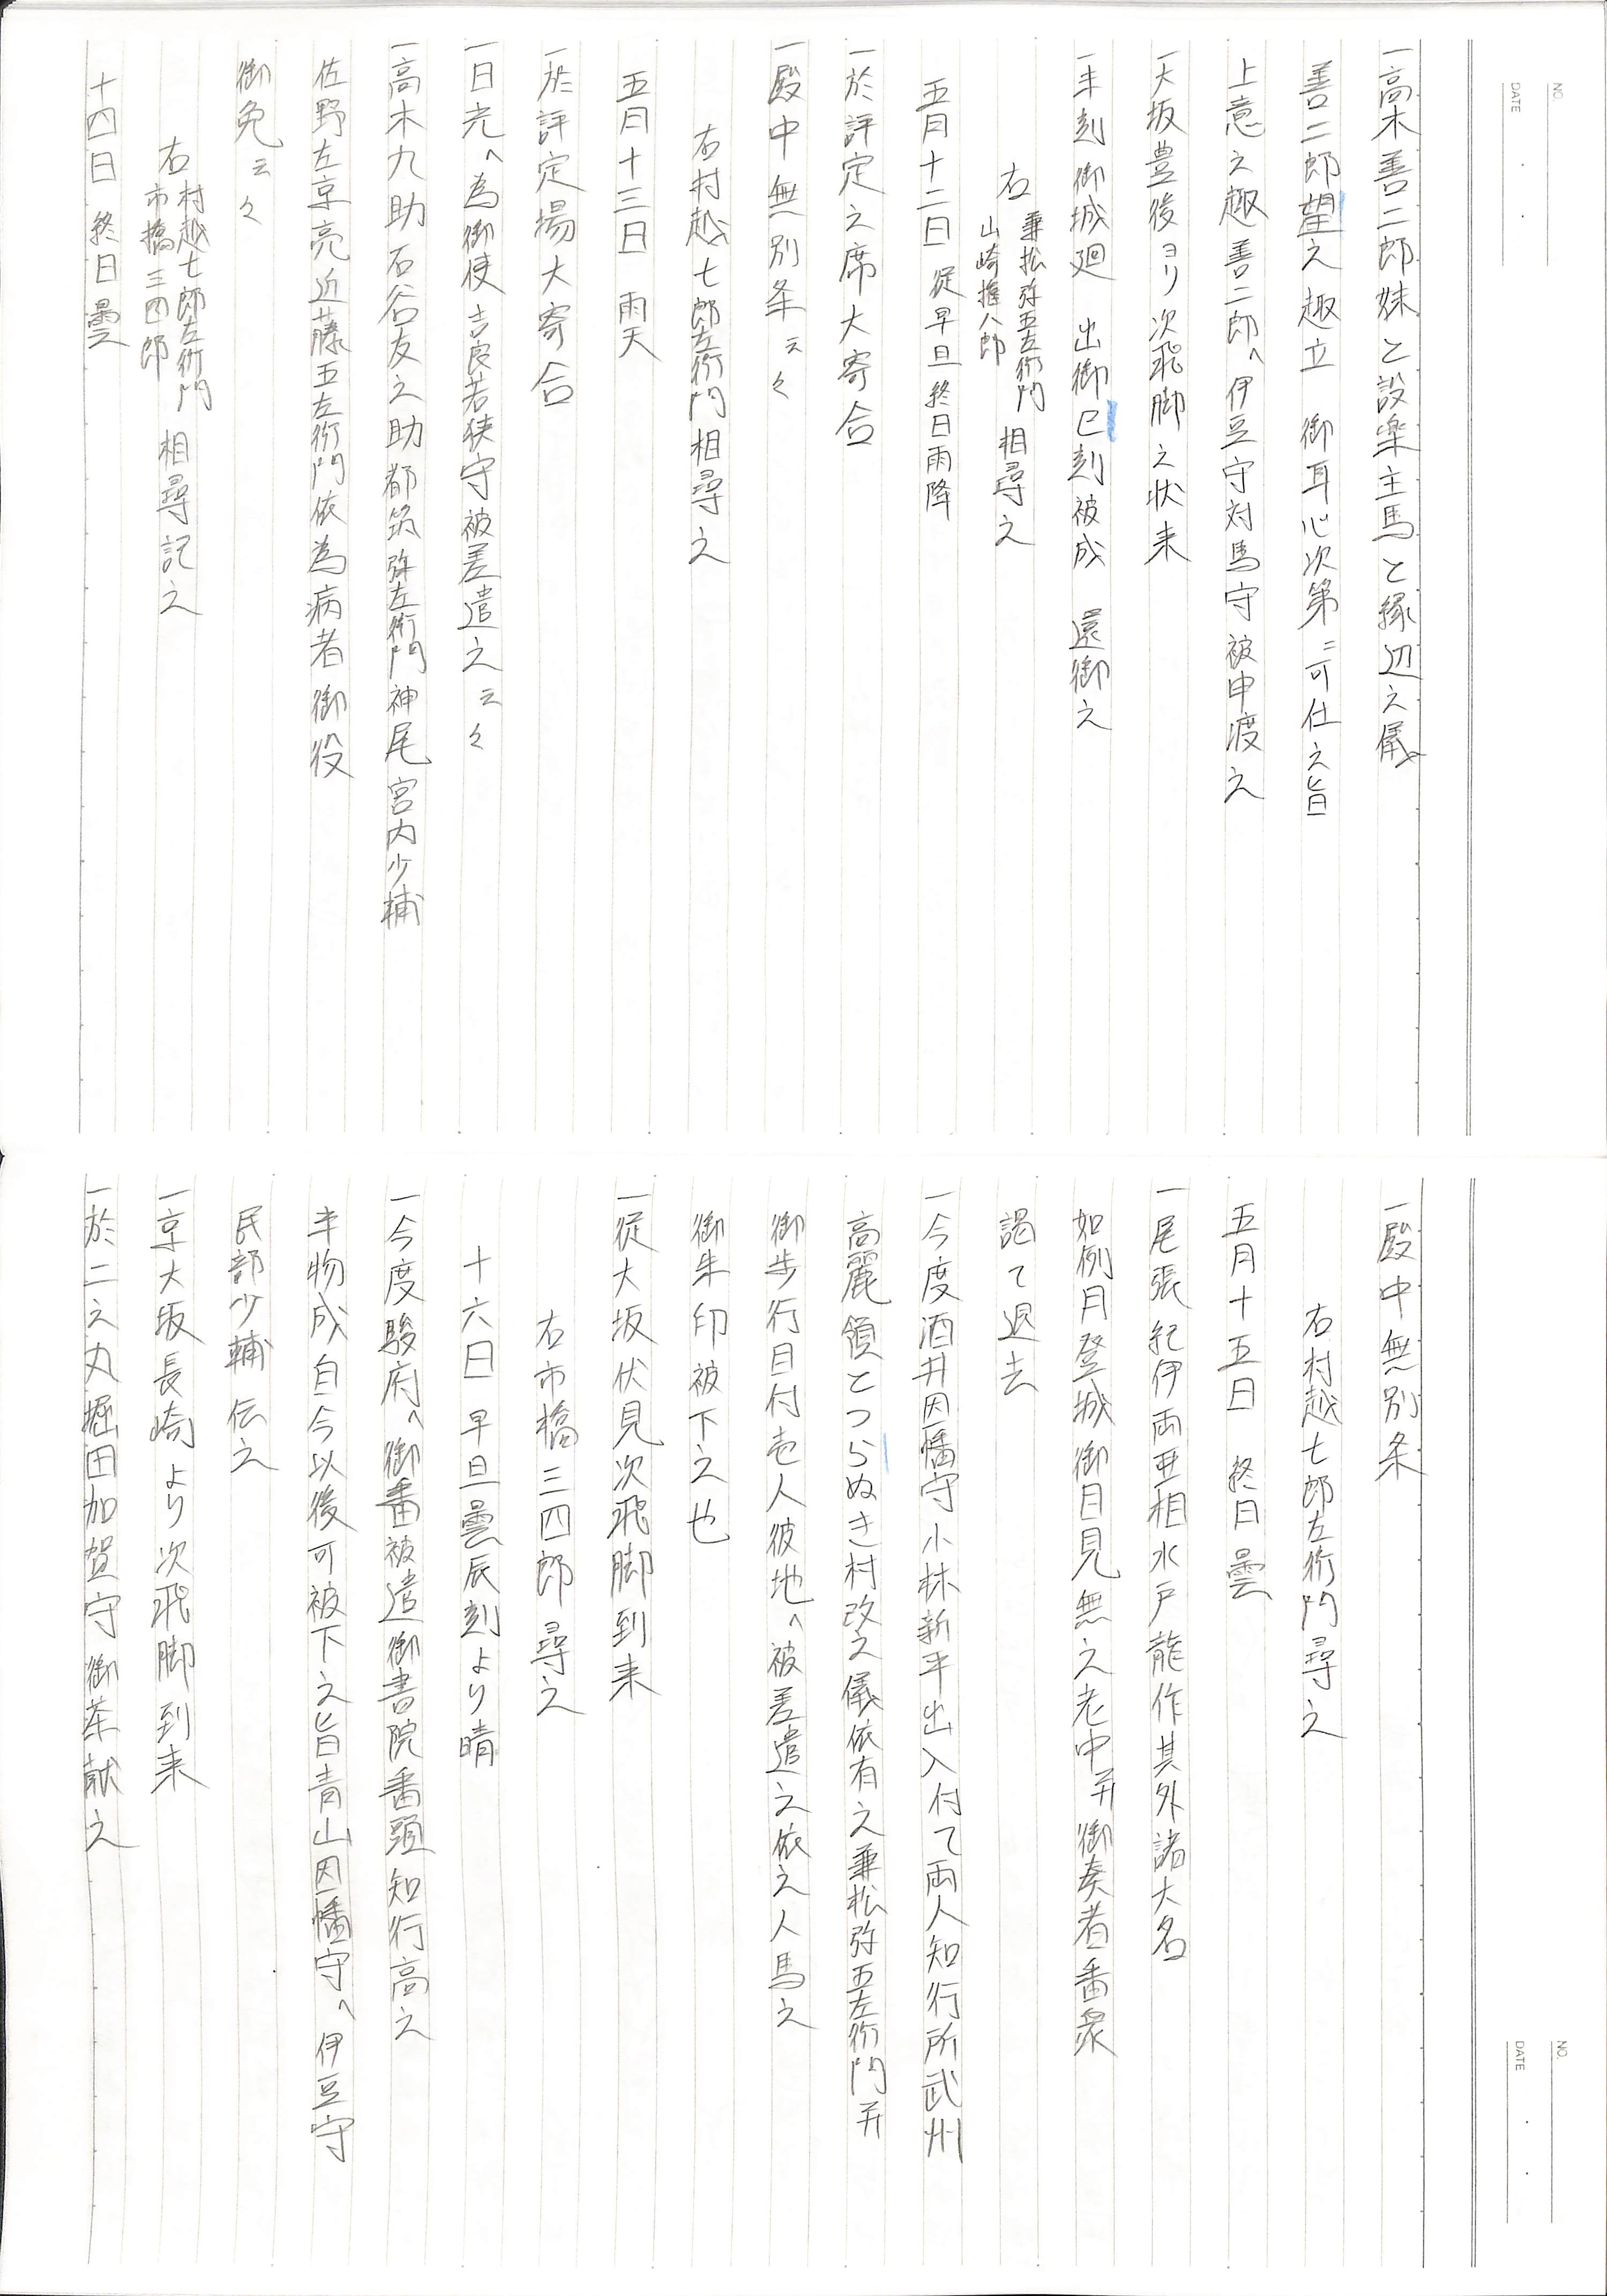 NO.
DATE
一高木善二郎妹と設楽主馬と縁辺之儀
善二郎望之趣立　御耳心次第ニ可仕之旨
上意之趣善二郎へ伊豆守対馬守被申渡之
一大坂豊後ヨリ次飛脚之状来
一未刻御城廻　出御巳刻被成　還御之
右　兼松弥五左衛門　相尋之
山崎権八郎
五月十二日　従早旦終日雨降
一於評定之席大寄合
一殿中無別条云々
右村越七郎左衛門相尋之
五月十三日　雨天
一於評定場大寄合
一日光へ為御使吉良若狭守被差遣之云々
一高木九助石谷友之助都筑弥左衛門神尾宮内少輔
佐野左京亮近藤五左衛門依為病者御役
御免云々
右　村越七郎左衛門　相尋記之
市橋三四郎
十四日　終日曇
NO.
DATE
一殿中無別条
右村越七郎左衛門尋之
五月十五日　終日曇
一尾張紀伊両亜相水戸龍作其外諸大名
如例月登城御目見無之老中并御奏者番衆
謁て退去
一今度酒井因幡守小林新平出入付て両人知行所武州
高麗領とつらぬき村改之儀依有之兼松弥五左衛門并
御歩行目付壱人彼地へ被差遣之依之人馬之
御朱印被下之也
一従大坂伏見次飛脚到来
右市橋三四郎尋之
十六日　早旦曇辰刻より晴
一今度駿府へ御番被遣御書院番頭知行高之
半物成自今以後可被下之旨青山因幡守へ伊豆守
民部少輔伝之
一京大坂長崎より次飛脚到来
一於二之丸堀田加賀守御茶献之